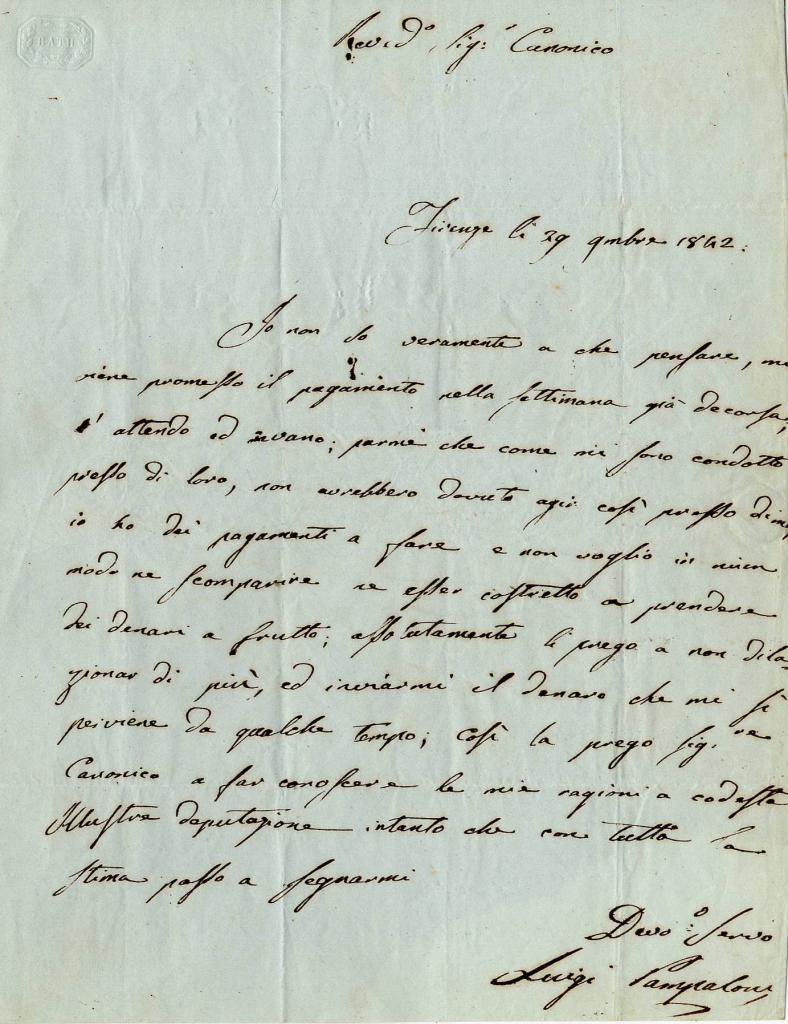 BATH
Revd.º Sig.r Canonico
Firenze li 29 9mbre 1842:
Io non so veramente a che pensare, mi
viene promesso il pagamento nella settimana già decorsa,
l'attendo ed invano; parmi che come mi sono condotto
presso di loro, non avrebbero dovuto agir così presso di me,
io ho dei pagamenti a fare e non voglio in niun
modo ne scomparire ne esser costretto a prendere
dei denari a frutto; assolutamente li prego a non dila-
zionar di più, ed inviarmi il denaro che mi si
perviene da qualche tempo; così la prego Sig.re
Canonico a far conoscere le mie ragioni a codesta
Illustre deputazione intanto che con tutta la
stima passo a segnarmi
Devo.º Servo
Luigi Pampaloni